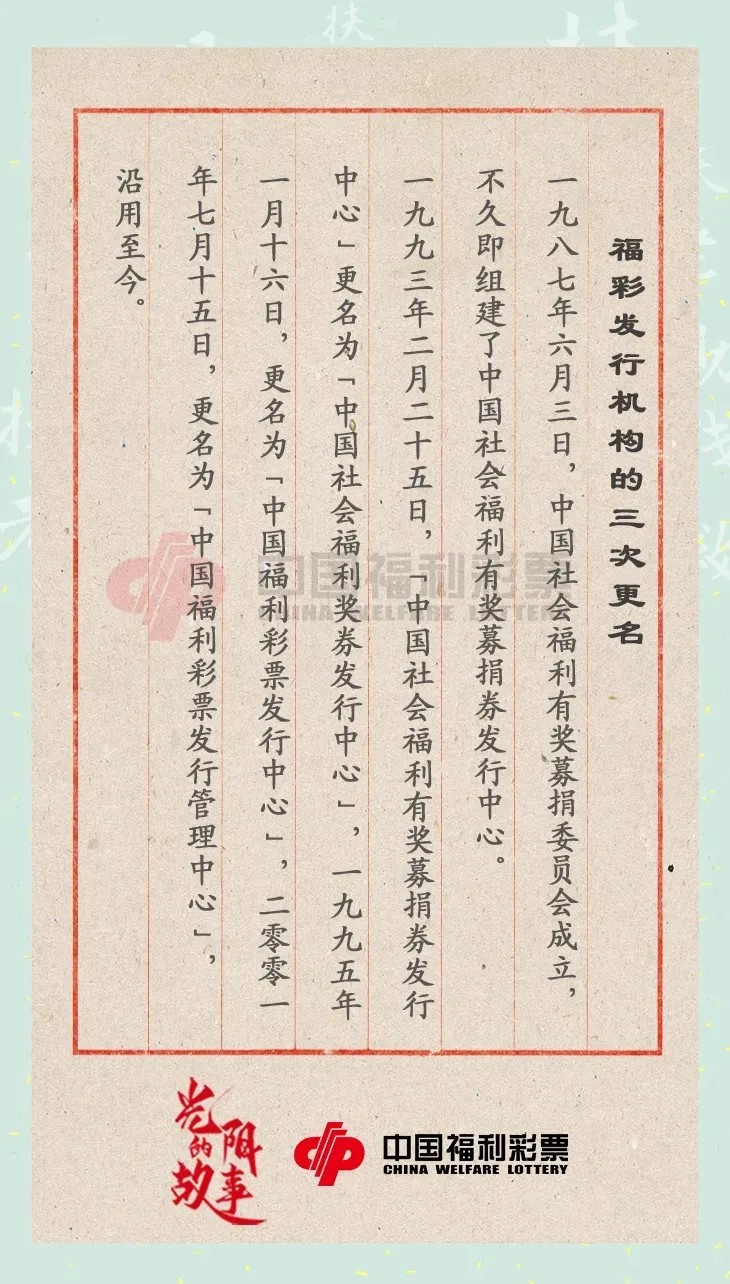 福彩发行机构的三次更名
一九八七年六月三日，中国社会福利有奖募捐委员会成立，
不久即组建了中国社会福利有奖募捐券发行中心。
一九九三年二月二十五日，「中国社会福利有奖募捐券发行
中心」更名为「中国社会福利奖券发行中心」，一九九五年
一月十六日，更名为「中国福利彩票发行中心」，二零零一
年七月十五日，更名为「中国福利彩票发行管理中心」，
沿用至今。
中国福利彩票
CHINA WELFARE LOTTERY
光阴的故事
中国福利彩票
CHINA WELFARE LOTTERY